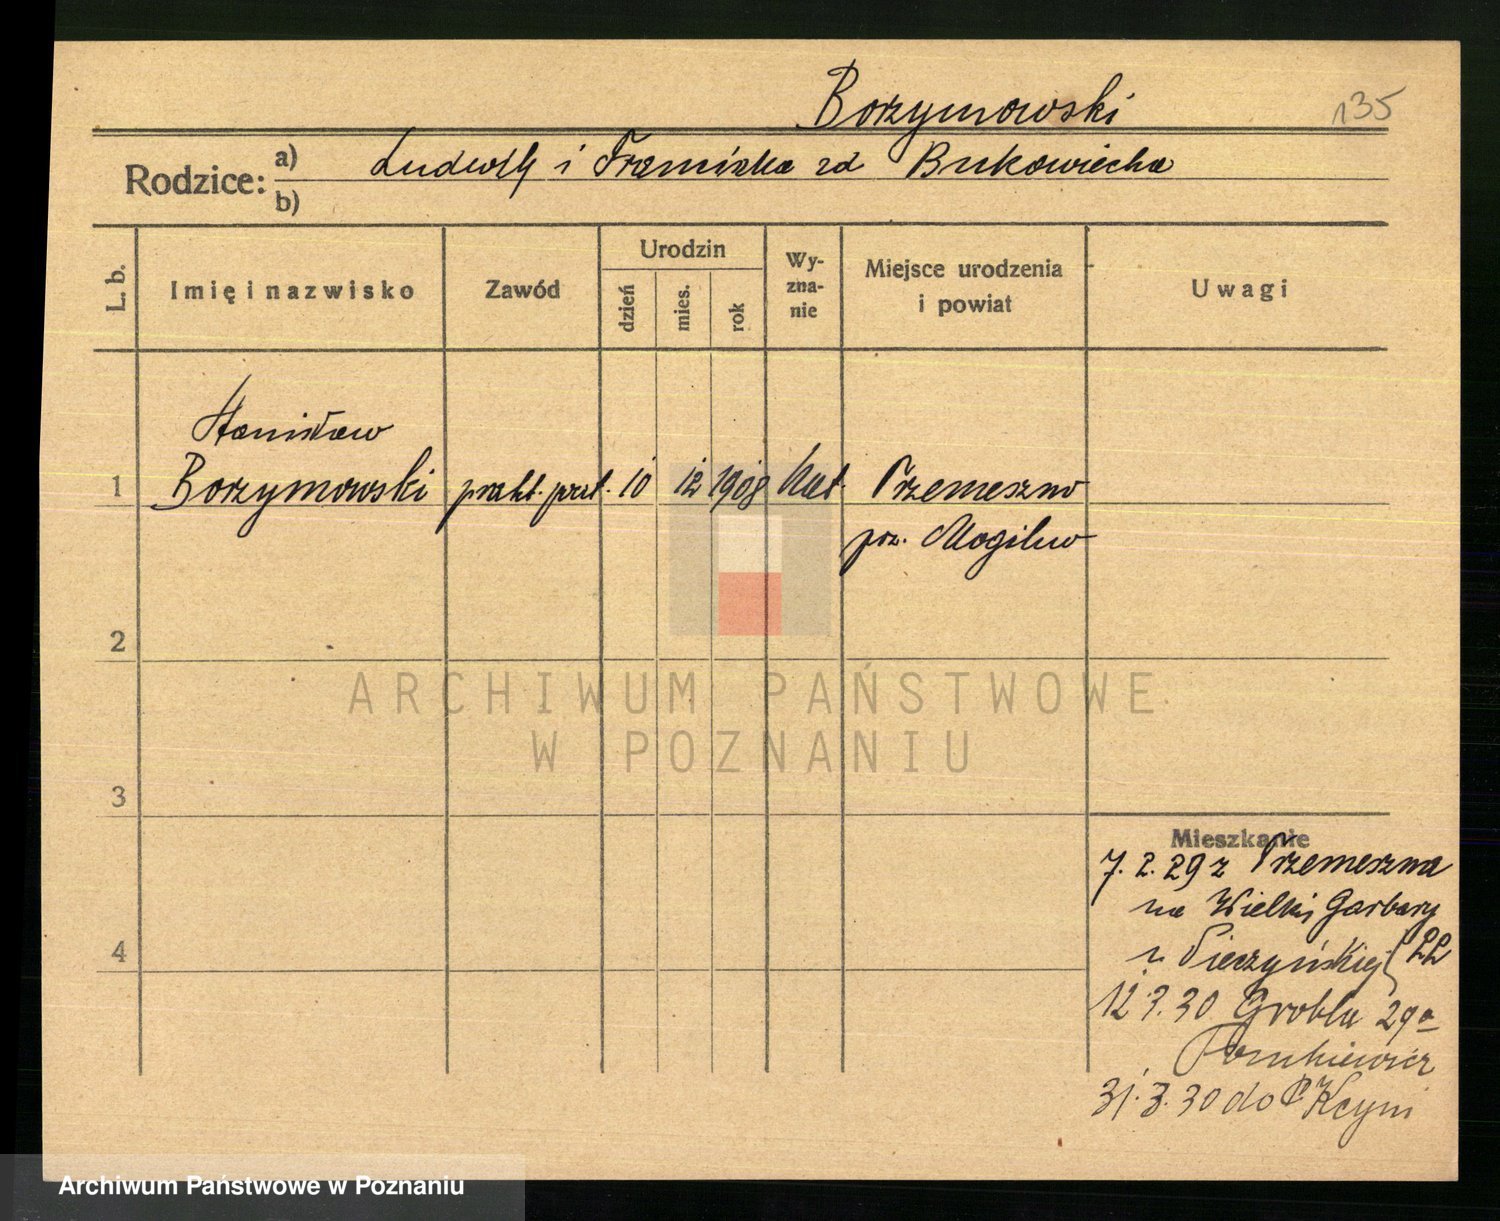 Borzymowski
135
Rodzice: a) Ludwik i Franciszka zd Bukowiecka
b)
L. b.
Imię i nazwisko
Zawód
Urodzin
dzień
mies.
rok
Wy-
zna-
nie
Miejsce urodzenia
i powiat
Uwagi
Stanisław
1 Borzymowski prakt. 10 12 1908 kat. Przemeszno
pow. Mogilno
2
3
4
Mieszkanie
7. 2. 29 z Przemeszna
na Wielkie Garbary
u Pieczyńskiej
12 3. 30 Grobla 29a
31. 3. 30 do Kcyni
ARCHIWUM PAŃSTWOWE
W POZNANIU
Archiwum Państwowe w Poznaniu